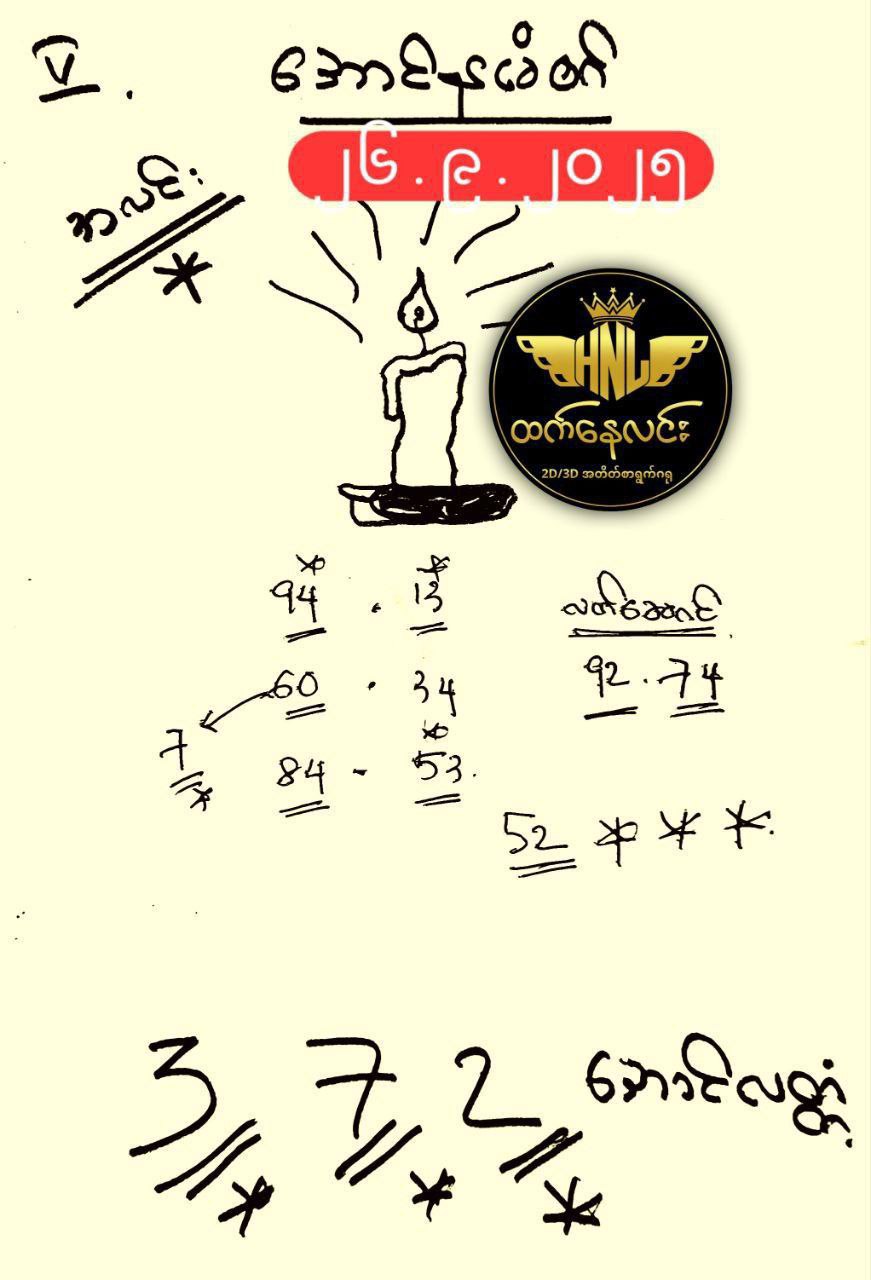 V.
အောင်နမိတ်
၂၆.၉.၂၀၂၅
အလင်း
HNL
ထက်နေလင်း
2D/3D အတိတ်စာရွက်ဂရု
94 . 13
60 . 34
7
84 - 53.
လက်ဆောင်
92 . 74
52 * * *.
3 7 2